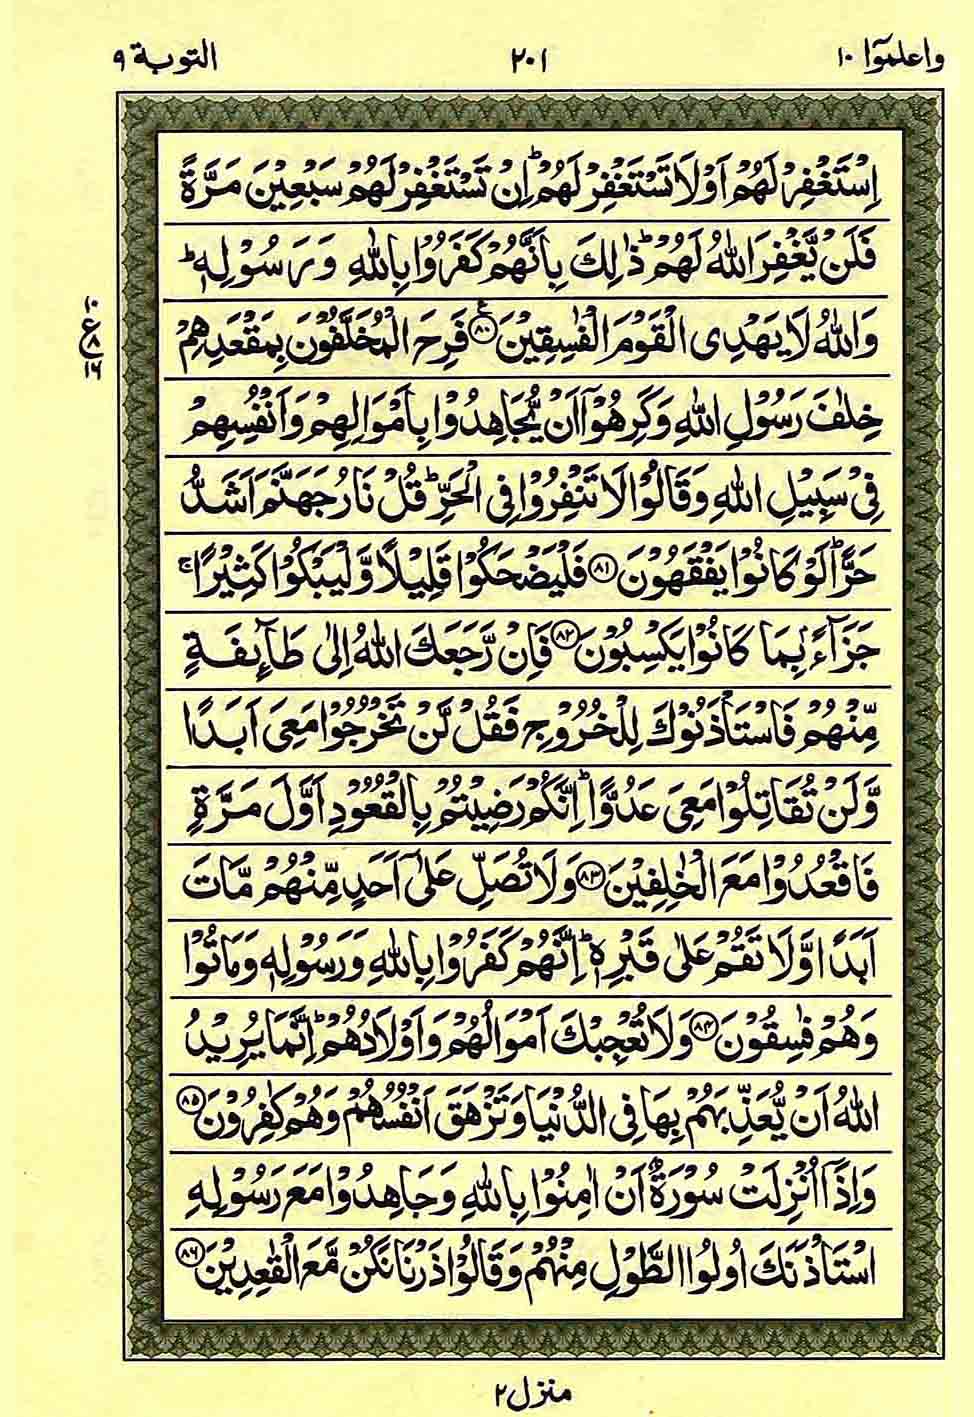 واعلموٓا ١٠ ٢٠١ التوبة ٩
اِسْتَغْفِرْ لَهُمْ اَوْ لَا تَسْتَغْفِرْ لَهُمْ ؕ اِنْ تَسْتَغْفِرْ لَهُمْ سَبْعِيْنَ مَرَّةً
فَلَنْ يَّغْفِرَ اللّٰهُ لَهُمْ ؕ ذٰلِكَ بِاَنَّهُمْ كَفَرُوْا بِاللّٰهِ وَرَسُوْلِهٖ ؕ
وَاللّٰهُ لَا يَهْدِى الْقَوْمَ الْفٰسِقِيْنَ ۧ ﴿٨٠﴾ فَرِحَ الْمُخَلَّفُوْنَ بِمَقْعَدِهِمْ
خِلٰفَ رَسُوْلِ اللّٰهِ وَكَرِهُوْٓا اَنْ يُّجَاهِدُوْا بِاَمْوَالِهِمْ وَاَنْفُسِهِمْ
فِىْ سَبِيْلِ اللّٰهِ وَقَالُوْا لَا تَنْفِرُوْا فِى الْحَرِّ ؕ قُلْ نَارُ جَهَنَّمَ اَشَدُّ
حَرًّا ؕ لَوْ كَانُوْا يَفْقَهُوْنَ ﴿٨١﴾ فَلْيَضْحَكُوْا قَلِيْلًا وَّلْيَبْكُوْا كَثِيْرًا ۚ
جَزَآءًۢ بِمَا كَانُوْا يَكْسِبُوْنَ ﴿٨٢﴾ فَاِنْ رَّجَعَكَ اللّٰهُ اِلٰى طَآئِفَةٍ
مِّنْهُمْ فَاسْتَاْذَنُوْكَ لِلْخُرُوْجِ فَقُلْ لَّنْ تَخْرُجُوْا مَعِىَ اَبَدًا
وَّلَنْ تُقَاتِلُوْا مَعِىَ عَدُوًّا ؕ اِنَّكُمْ رَضِيْتُمْ بِالْقُعُوْدِ اَوَّلَ مَرَّةٍ
فَاقْعُدُوْا مَعَ الْخٰلِفِيْنَ ﴿٨٣﴾ وَلَا تُصَلِّ عَلٰٓى اَحَدٍ مِّنْهُمْ مَّاتَ
اَبَدًا وَّلَا تَقُمْ عَلٰى قَبْرِهٖ ؕ اِنَّهُمْ كَفَرُوْا بِاللّٰهِ وَرَسُوْلِهٖ وَمَاتُوْا
وَهُمْ فٰسِقُوْنَ ﴿٨٤﴾ وَلَا تُعْجِبْكَ اَمْوَالُهُمْ وَاَوْلَادُهُمْ ؕ اِنَّمَا يُرِيْدُ
اللّٰهُ اَنْ يُّعَذِّبَهُمْ بِهَا فِى الدُّنْيَا وَتَزْهَقَ اَنْفُسُهُمْ وَهُمْ كٰفِرُوْنَ ﴿٨٥﴾
وَاِذَآ اُنْزِلَتْ سُوْرَةٌ اَنْ اٰمِنُوْا بِاللّٰهِ وَجَاهِدُوْا مَعَ رَسُوْلِهِ
اسْتَاْذَنَكَ اُولُوا الطَّوْلِ مِنْهُمْ وَقَالُوْا ذَرْنَا نَكُنْ مَّعَ الْقٰعِدِيْنَ ﴿٨٦﴾
١٠
ع ٨
١٦
منزل ٢